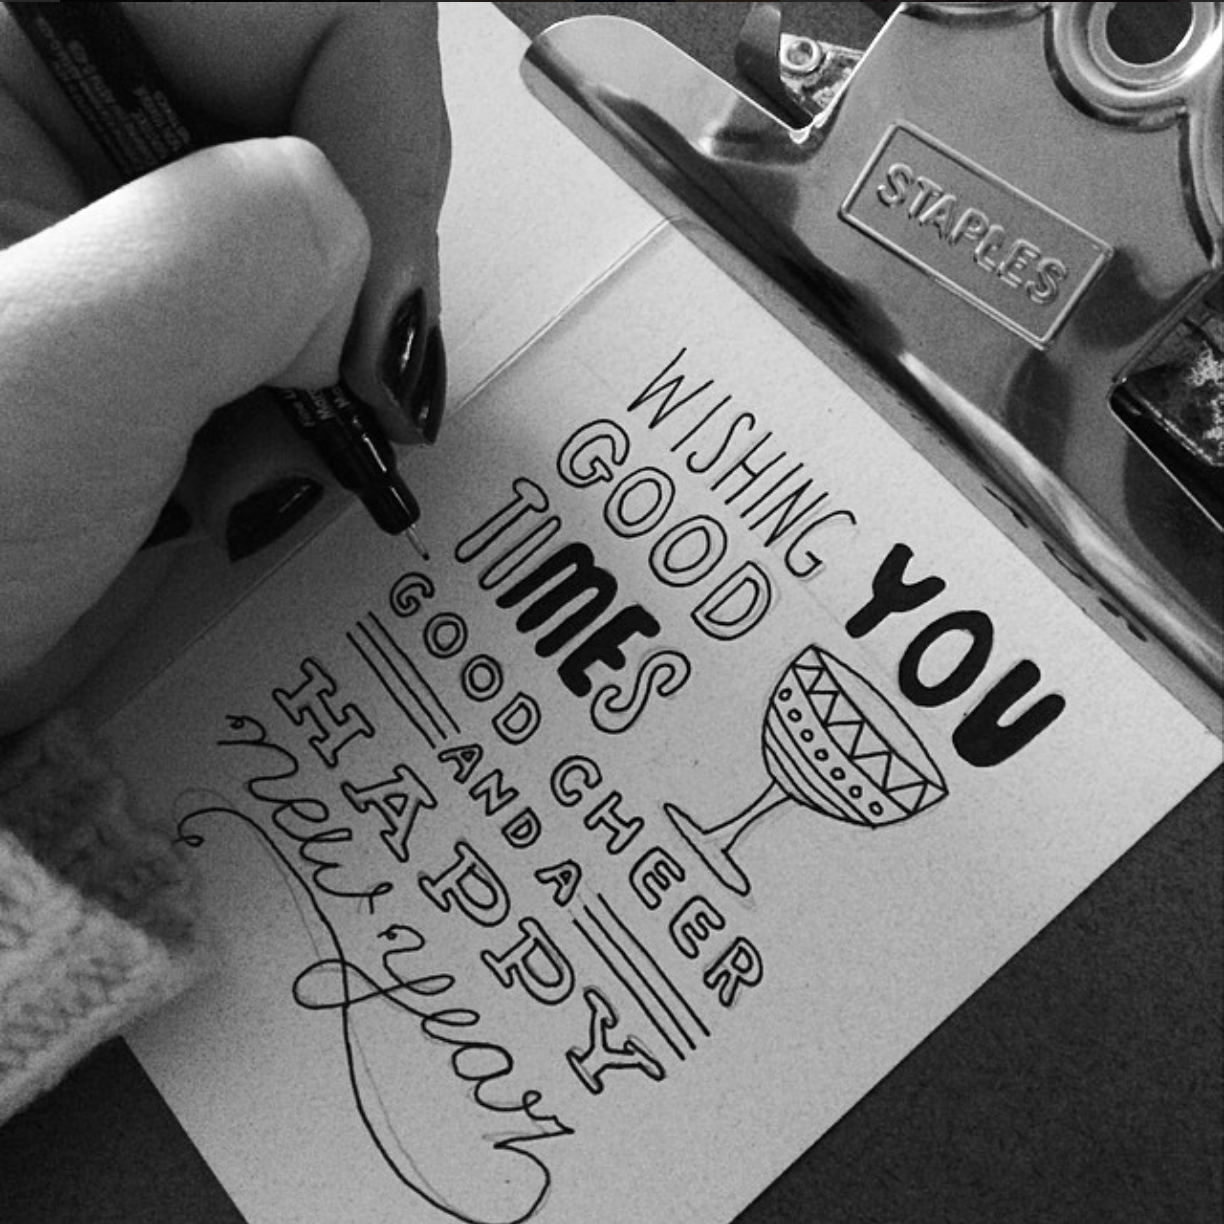 STAPLES
WISHING YOU
GOOD
TIMES
GOOD CHEER
AND A
HAPPY
new year